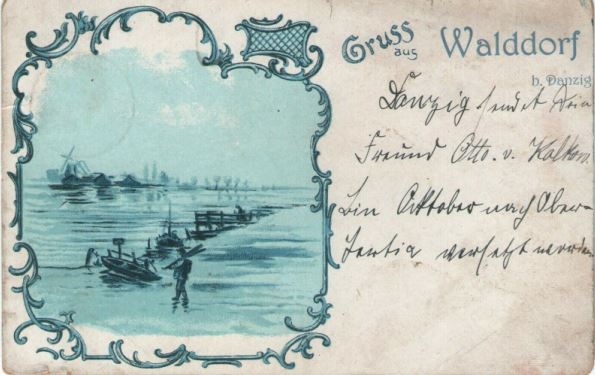 Gruss
aus
Walddorf
b. Danzig
Danzig sendet Dein
Freund Otto. v. Kalkow.
Bin Oktober nach Ober-
tertia versetzt worden.